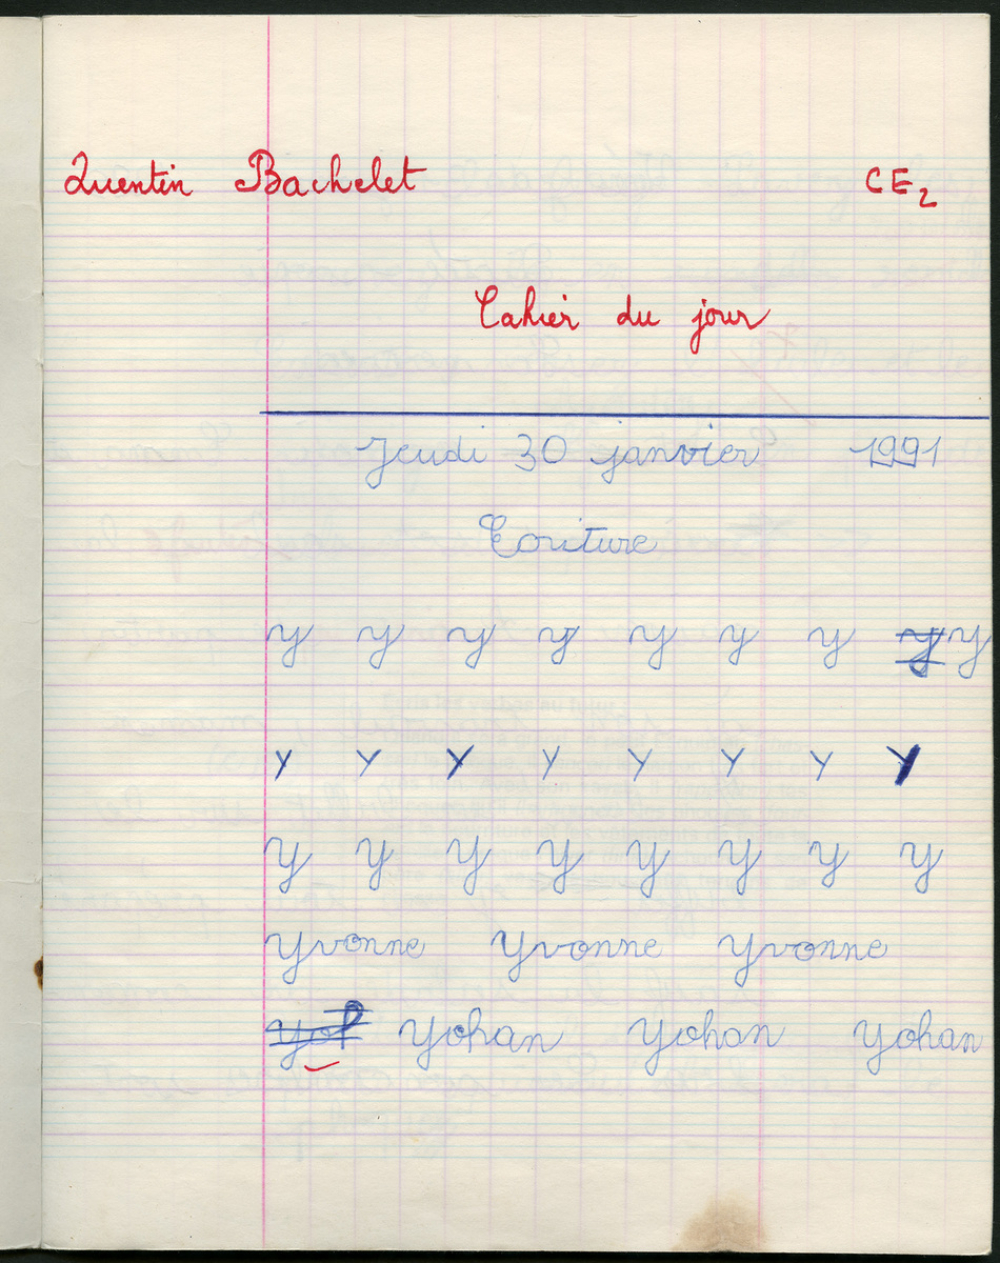 Quentin Bachelet CE2
Cahier du jour
Jeudi 30 janvier 1991
Ecriture
y y y y y y y y y
y y y y y y y y
y y y y y y y y
Yvonne Yvonne Yvonne
yof Yohan Yohan Yohan